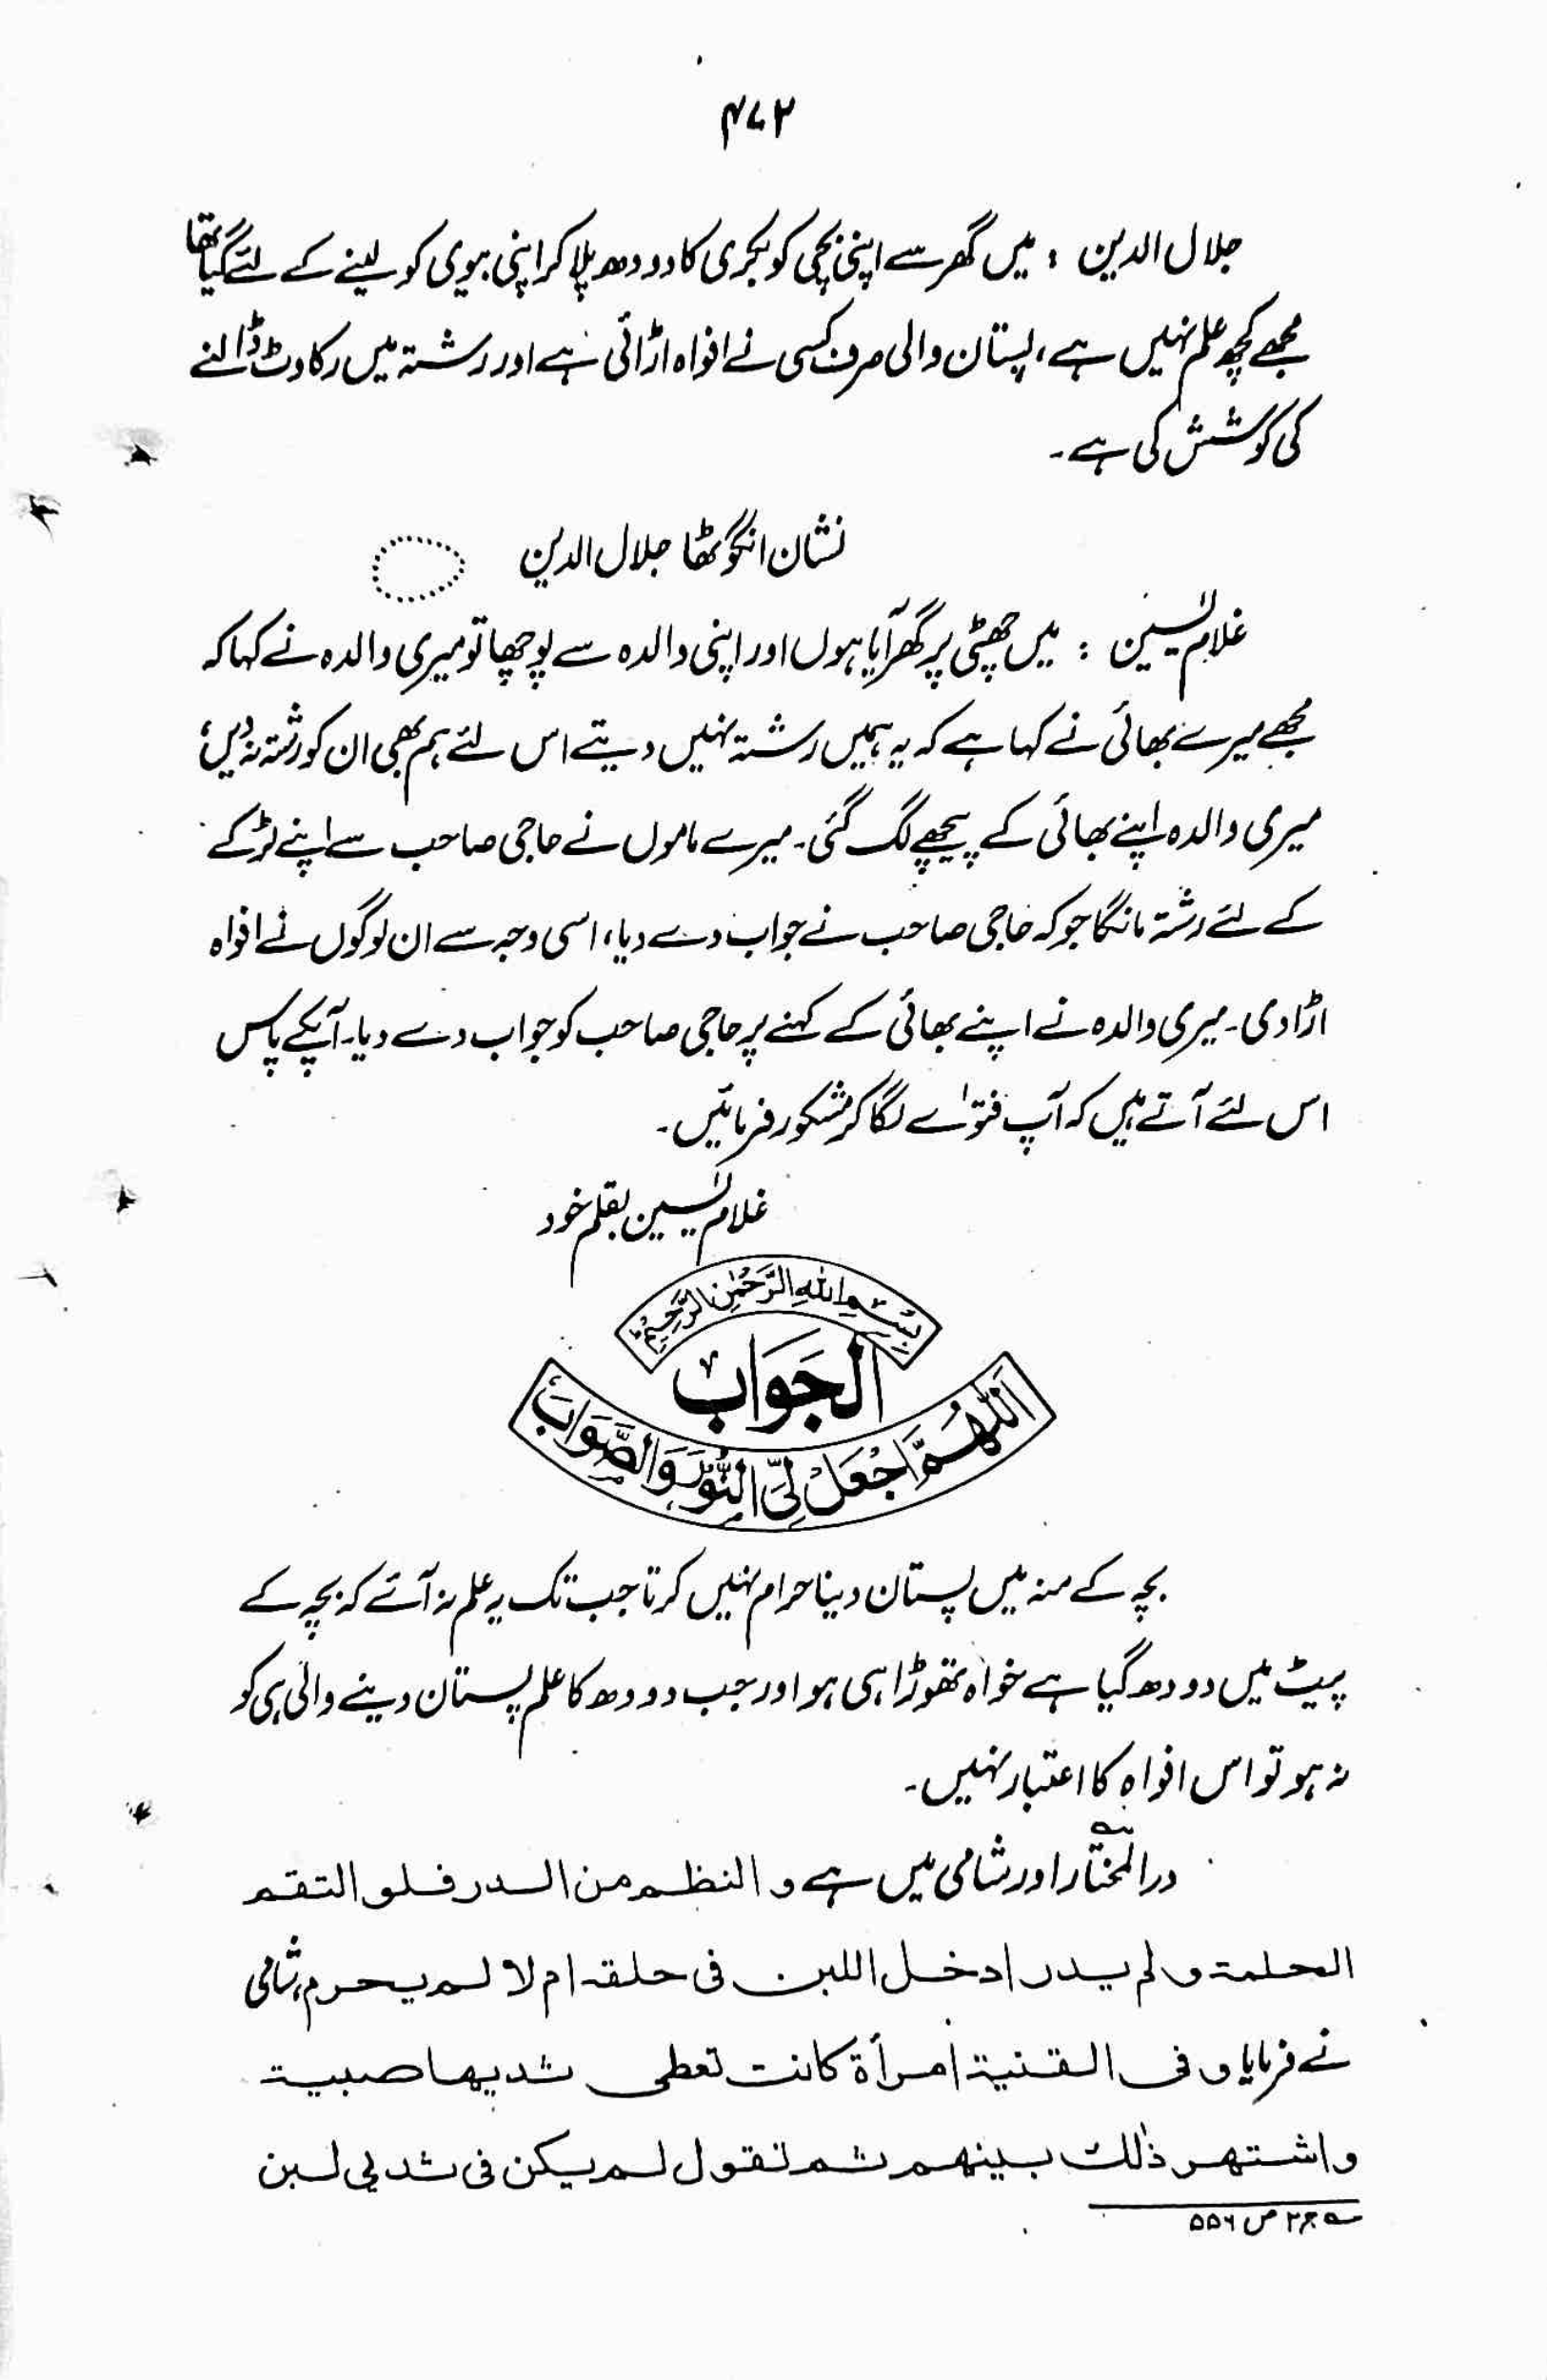 ۴۷۲
جلال الدین : میں گھر سے اپنی بچی کو بکری کا دودھ پلا کر اپنی بیوی کو لینے کے لئے گیا تھا
مجھے کچھ علم نہیں ہے، پستان والی صرف کسی نے افواہ اڑائی ہے اور رشتہ میں رکاوٹ ڈالنے
کی کوشش کی ہے۔
نشان انگوٹھا جلال الدین
غلام یٰسین : میں چھٹی پر گھر آیا ہوں اور اپنی والدہ سے پوچھا تو میری والدہ نے کہا کہ
مجھے میرے بھائی نے کہا ہے کہ یہ ہمیں رشتہ نہیں دیتے اس لئے ہم بھی ان کو رشتہ نہ دیں،
میری والدہ اپنے بھائی کے پیچھے لگ گئی۔ میرے ماموں نے حاجی صاحب سے اپنے لڑکے
کے لئے رشتہ مانگا جو کہ حاجی صاحب نے جواب دے دیا، اسی وجہ سے ان لوگوں نے افواہ
اڑا دی۔ میری والدہ نے اپنے بھائی کے کہنے پر حاجی صاحب کو جواب دے دیا۔ آپکے پاس
اس لئے آتے ہیں کہ آپ فتوٰے لگا کر مشکور فرمائیں۔
غلام یٰسین بقلم خود
بِسْمِ اللهِ الرَّحْمٰنِ الرَّحِيْمِ
الجَوَابُ
اَللّٰهُمَّ اجْعَلْ لِیَ النُّوْرَ وَالصَّوَابَ
بچہ کے منہ میں پستان دینا حرام نہیں کرتا جب تک یہ علم نہ آئے کہ بچہ کے
پیٹ میں دودھ گیا ہے خواہ تھوڑا ہی ہو اور جب دودھ کا علم پستان دینے والی ہی کو
نہ ہو تو اس افواہ کا اعتبار نہیں۔
درالمختار اور شامی میں ہے و النظم من الدر فلو التقم
الحلمة و لم یدر ادخل اللبن فی حلقہ ام لا لم یحرم، شامی
نے فرمایا و فی القنیة امرأة کانت تعطی ثدیھا صبیة
واشتھر ذٰلک بینھم ثم تقول لم یکن فی ثدیی لبن
ج ۲ ص ۵۵۶